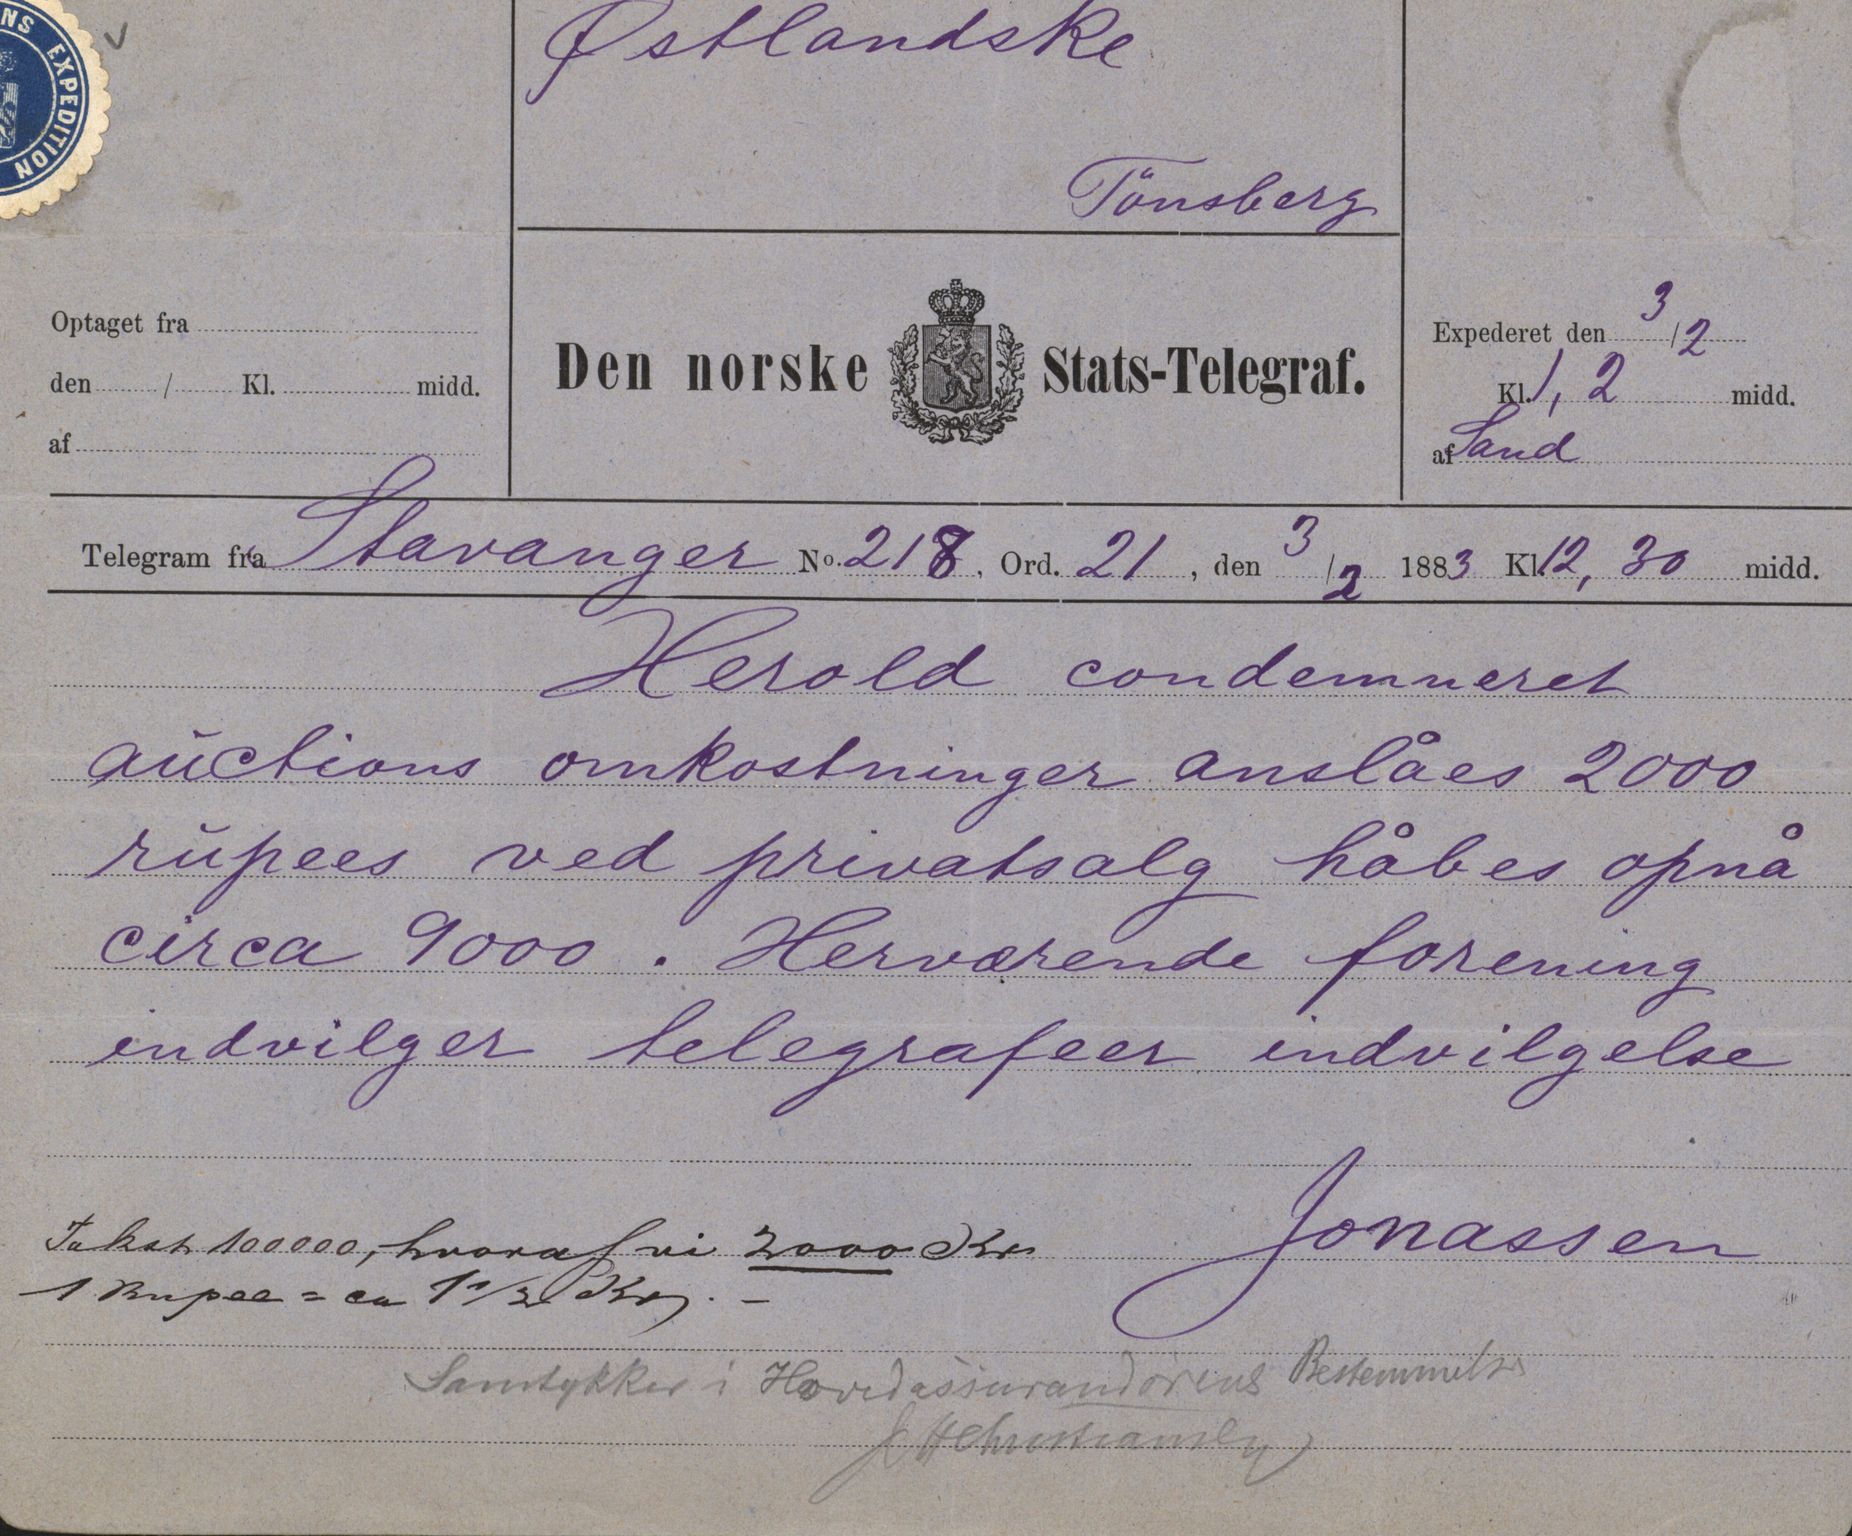 NS EXPEDITION
Østlandske
Tönsberg
Optaget fra
den / Kl. midd.
af
Den norske Stats-Telegraf.
Expederet den 3/2
Kl. 1,2 midd.
af Sand
Telegram fra Stavanger No. 218, Ord. 21, den 3/2 1883 Kl. 12,30 midd.
Herold condemneret
auctions omkostninger anslåes 2000
rupees ved privatsalg håbes opnå
circa 9000. Herværende forening
indvilger telegrafeer indvilgelse
Jonassen
Takst 100000, hvoraf vi 2000 Kr
1 Rupee = ca 1 1/2 Kr. -
Samtykker i Hovedassurandørens Bestemmelse
Christiansen